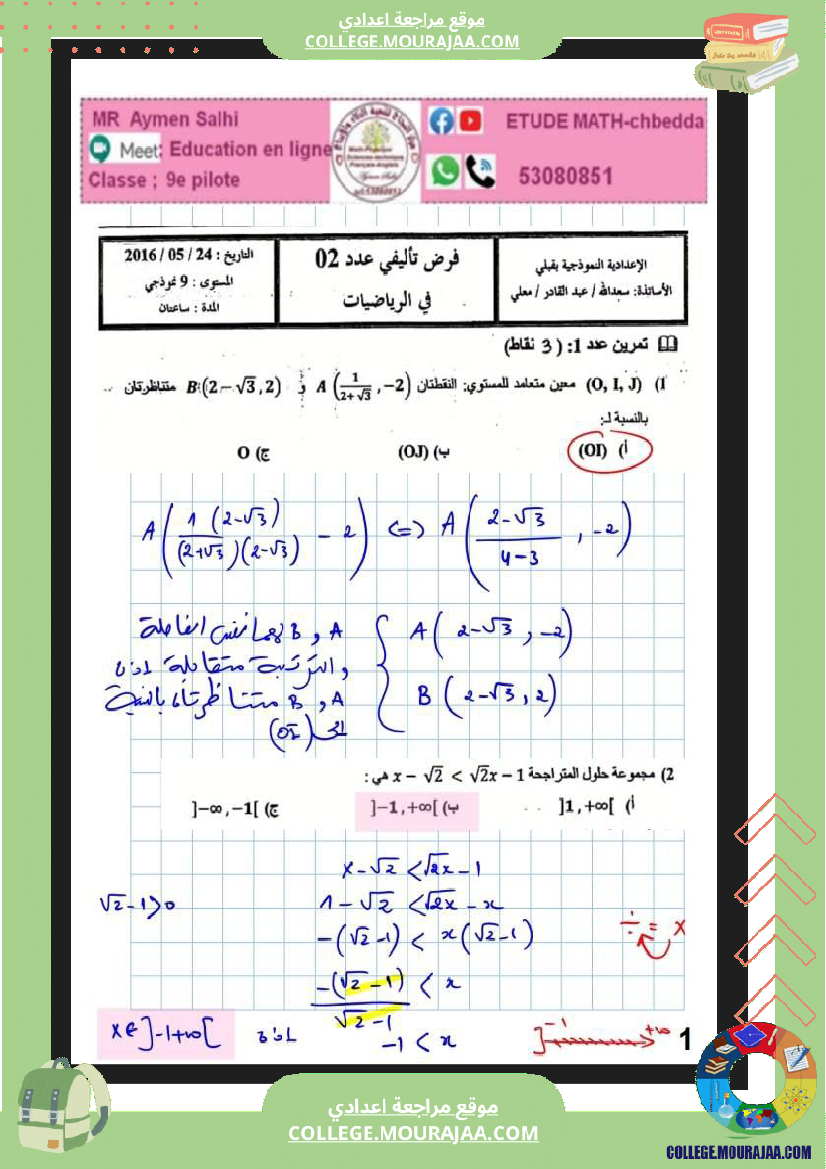 موقع مراجعة اعدادي
COLLEGE.MOURAJAA.COM
MR Aymen Salhi
Meet: Education en ligne
Classe ; 9e pilote
ETUDE MATH-chbedda
53080851
الإعدادية النموذجية بقبلي
الأساتذة: سعدالله / عبد القادر / معلي
فرض تأليفي عدد 02
في الرياضيات
التاريخ : 24 / 05 / 2016
المستوى : 9 نموذجي
المدة : ساعتان
تمرين عدد 1: ( 3 نقاط)
1) (O, I, J) معين متعامد للمستوي: النقطتان A (1/(2+√3) , −2) و B (2 − √3 , 2) متناظرتان
بالنسبة لـ:
أ) (OI) ب) (OJ) ج) O
A( 1 (2-√3) / (2+√3)(2-√3) - 2 ) <=> A( 2-√3 / 4-3 , -2 )
A( 2-√3 , -2 )
B( 2-√3 , 2 )
A و B لهما نفس الفاصلة
والترتيبة متقابلة اذن
A و B متناظرتان بالنسبة
الى (OI)
2) مجموعة حلول المتراجحة x − √2 < √2x − 1 هي :
أ) ]1, +∞[ ب) ]−1, +∞[ ج) ]−∞, −1[
x - √2 < √2x - 1
1 - √2 < √2x - x
√2 - 1 > 0
-(√2 - 1) < x(√2 - 1)
÷ = x
-(√2 - 1) / √2 - 1 < x
-1 < x
اذن
x ∈ ]-1 +∞[
]-1 +∞
1
موقع مراجعة اعدادي
COLLEGE.MOURAJAA.COM
COLLEGE.MOURAJAA.COM